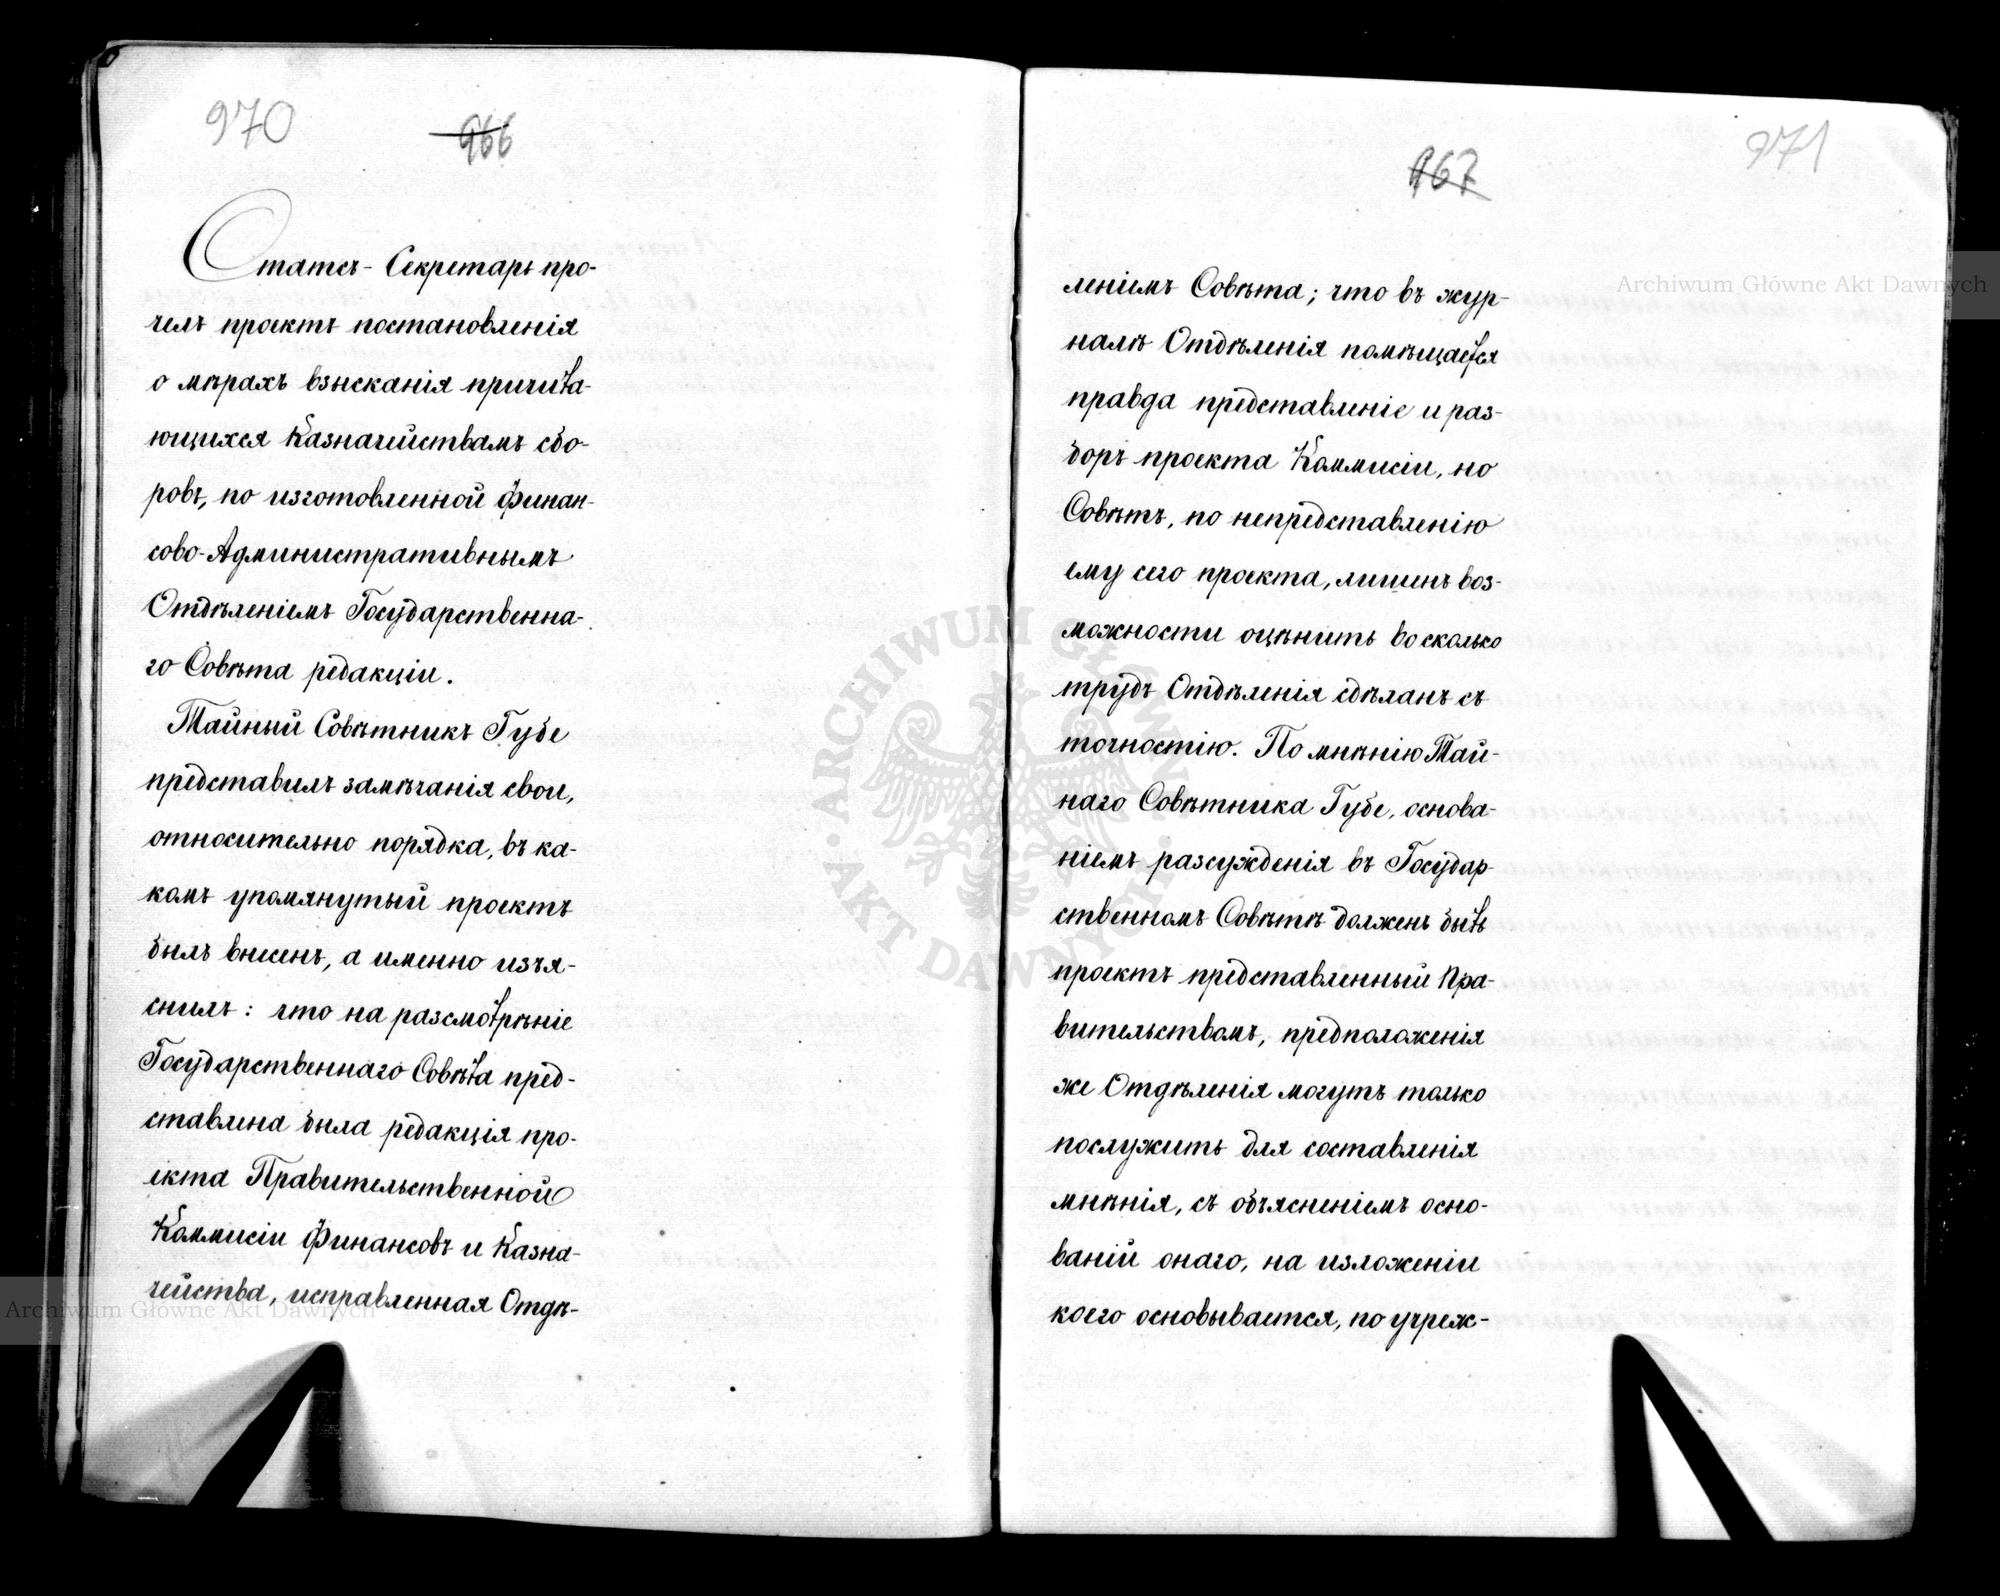 970
966
Статсъ-Секретарь про-
челъ проектъ постановленія
о мѣрахъ взысканія причита-
ющихся Казначействамъ сбо-
ровъ, по изготовленной Финан-
сово-Административнымъ
Отдѣленіемъ Государственна-
го Совѣта редакціи.
Тайный Совѣтникъ Губе
представилъ замѣчанія свои,
относительно порядка, въ ка-
комъ упомянутый проектъ
былъ внесенъ, а именно изъя-
снилъ: что на разсмотрѣніе
Государственнаго Совѣта пред-
ставлена была редакція про-
екта Правительственной
Коммисіи Финансовъ и Казна-
чейства, исправленная Отдѣ-
967
971
леніемъ Совѣта; что въ жур-
налѣ Отдѣленія помѣщается
правда представленіе и раз-
боръ проекта Коммисіи, но
Совѣтъ, по непредставленію
ему сего проекта, лишенъ воз-
можности оцѣнить восколько
трудъ Отдѣленія сдѣланъ съ
точностію. По мнѣнію Тай-
наго Совѣтника Губе, основа-
ніемъ разсужденія въ Государ-
ственномъ Совѣтѣ долженъ быть
проектъ представленный Пра-
вительствомъ, предположенія
же Отдѣленія могутъ только
послужить для составленія
мнѣнія, съ объясненіемъ осно-
ваній онаго, на изложеніи
коего основывается, по учреж-
Archiwum Główne Akt Dawnych
Archiwum Główne Akt Dawnych
ARCHIWUM GŁÓWNE AKT DAWNYCH